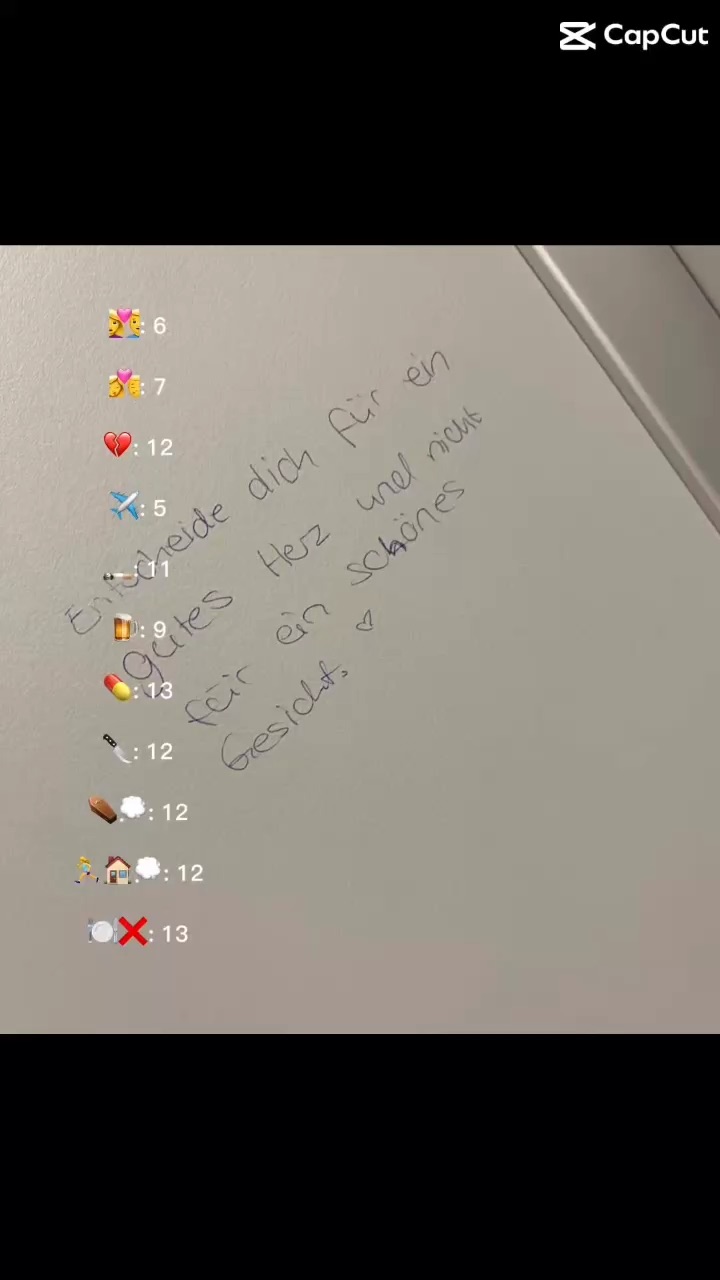 CapCut
👩‍❤️‍👨: 6
👩‍❤️‍👩: 7
💔: 12
✈️: 5
🚬: 11
🍺: 9
💊: 13
🔪: 12
⚰️💭: 12
🏃‍♀️🏠💭: 12
🍽️❌: 13
Entscheide dich für ein
gutes Herz und nicht
für ein schönes
Gesicht. ♡